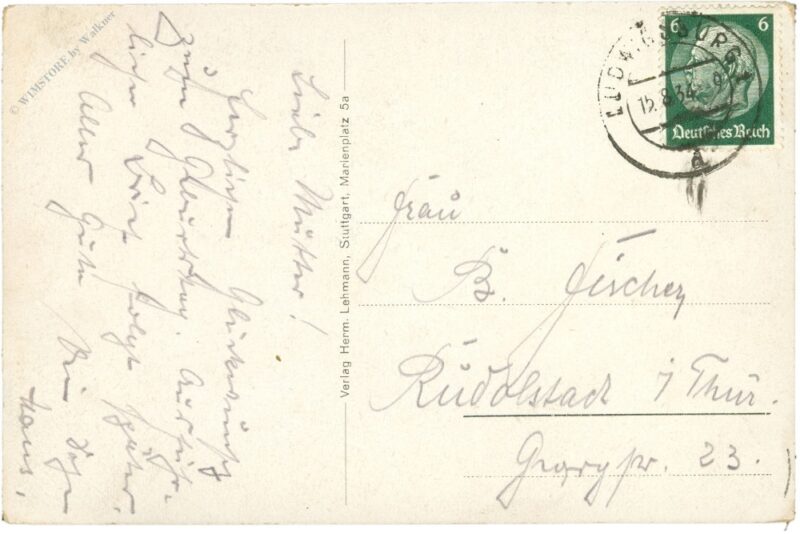 © WIMSTORE by Walkner
Liebe Mutter!
Herzlichen Glückwunsch
zum Geburtstag. Ausführ-
licher Brief folgt später.
Alles Gute Dein
Hans.
Verlag Herm. Lehmann, Stuttgart, Marienplatz 5a
LUDWIGSBURG
15.8.34
a
6 6
Deutsches Reich
Frau
B. Fischer
Rudolstadt i Thür.
Georgstr. 23.